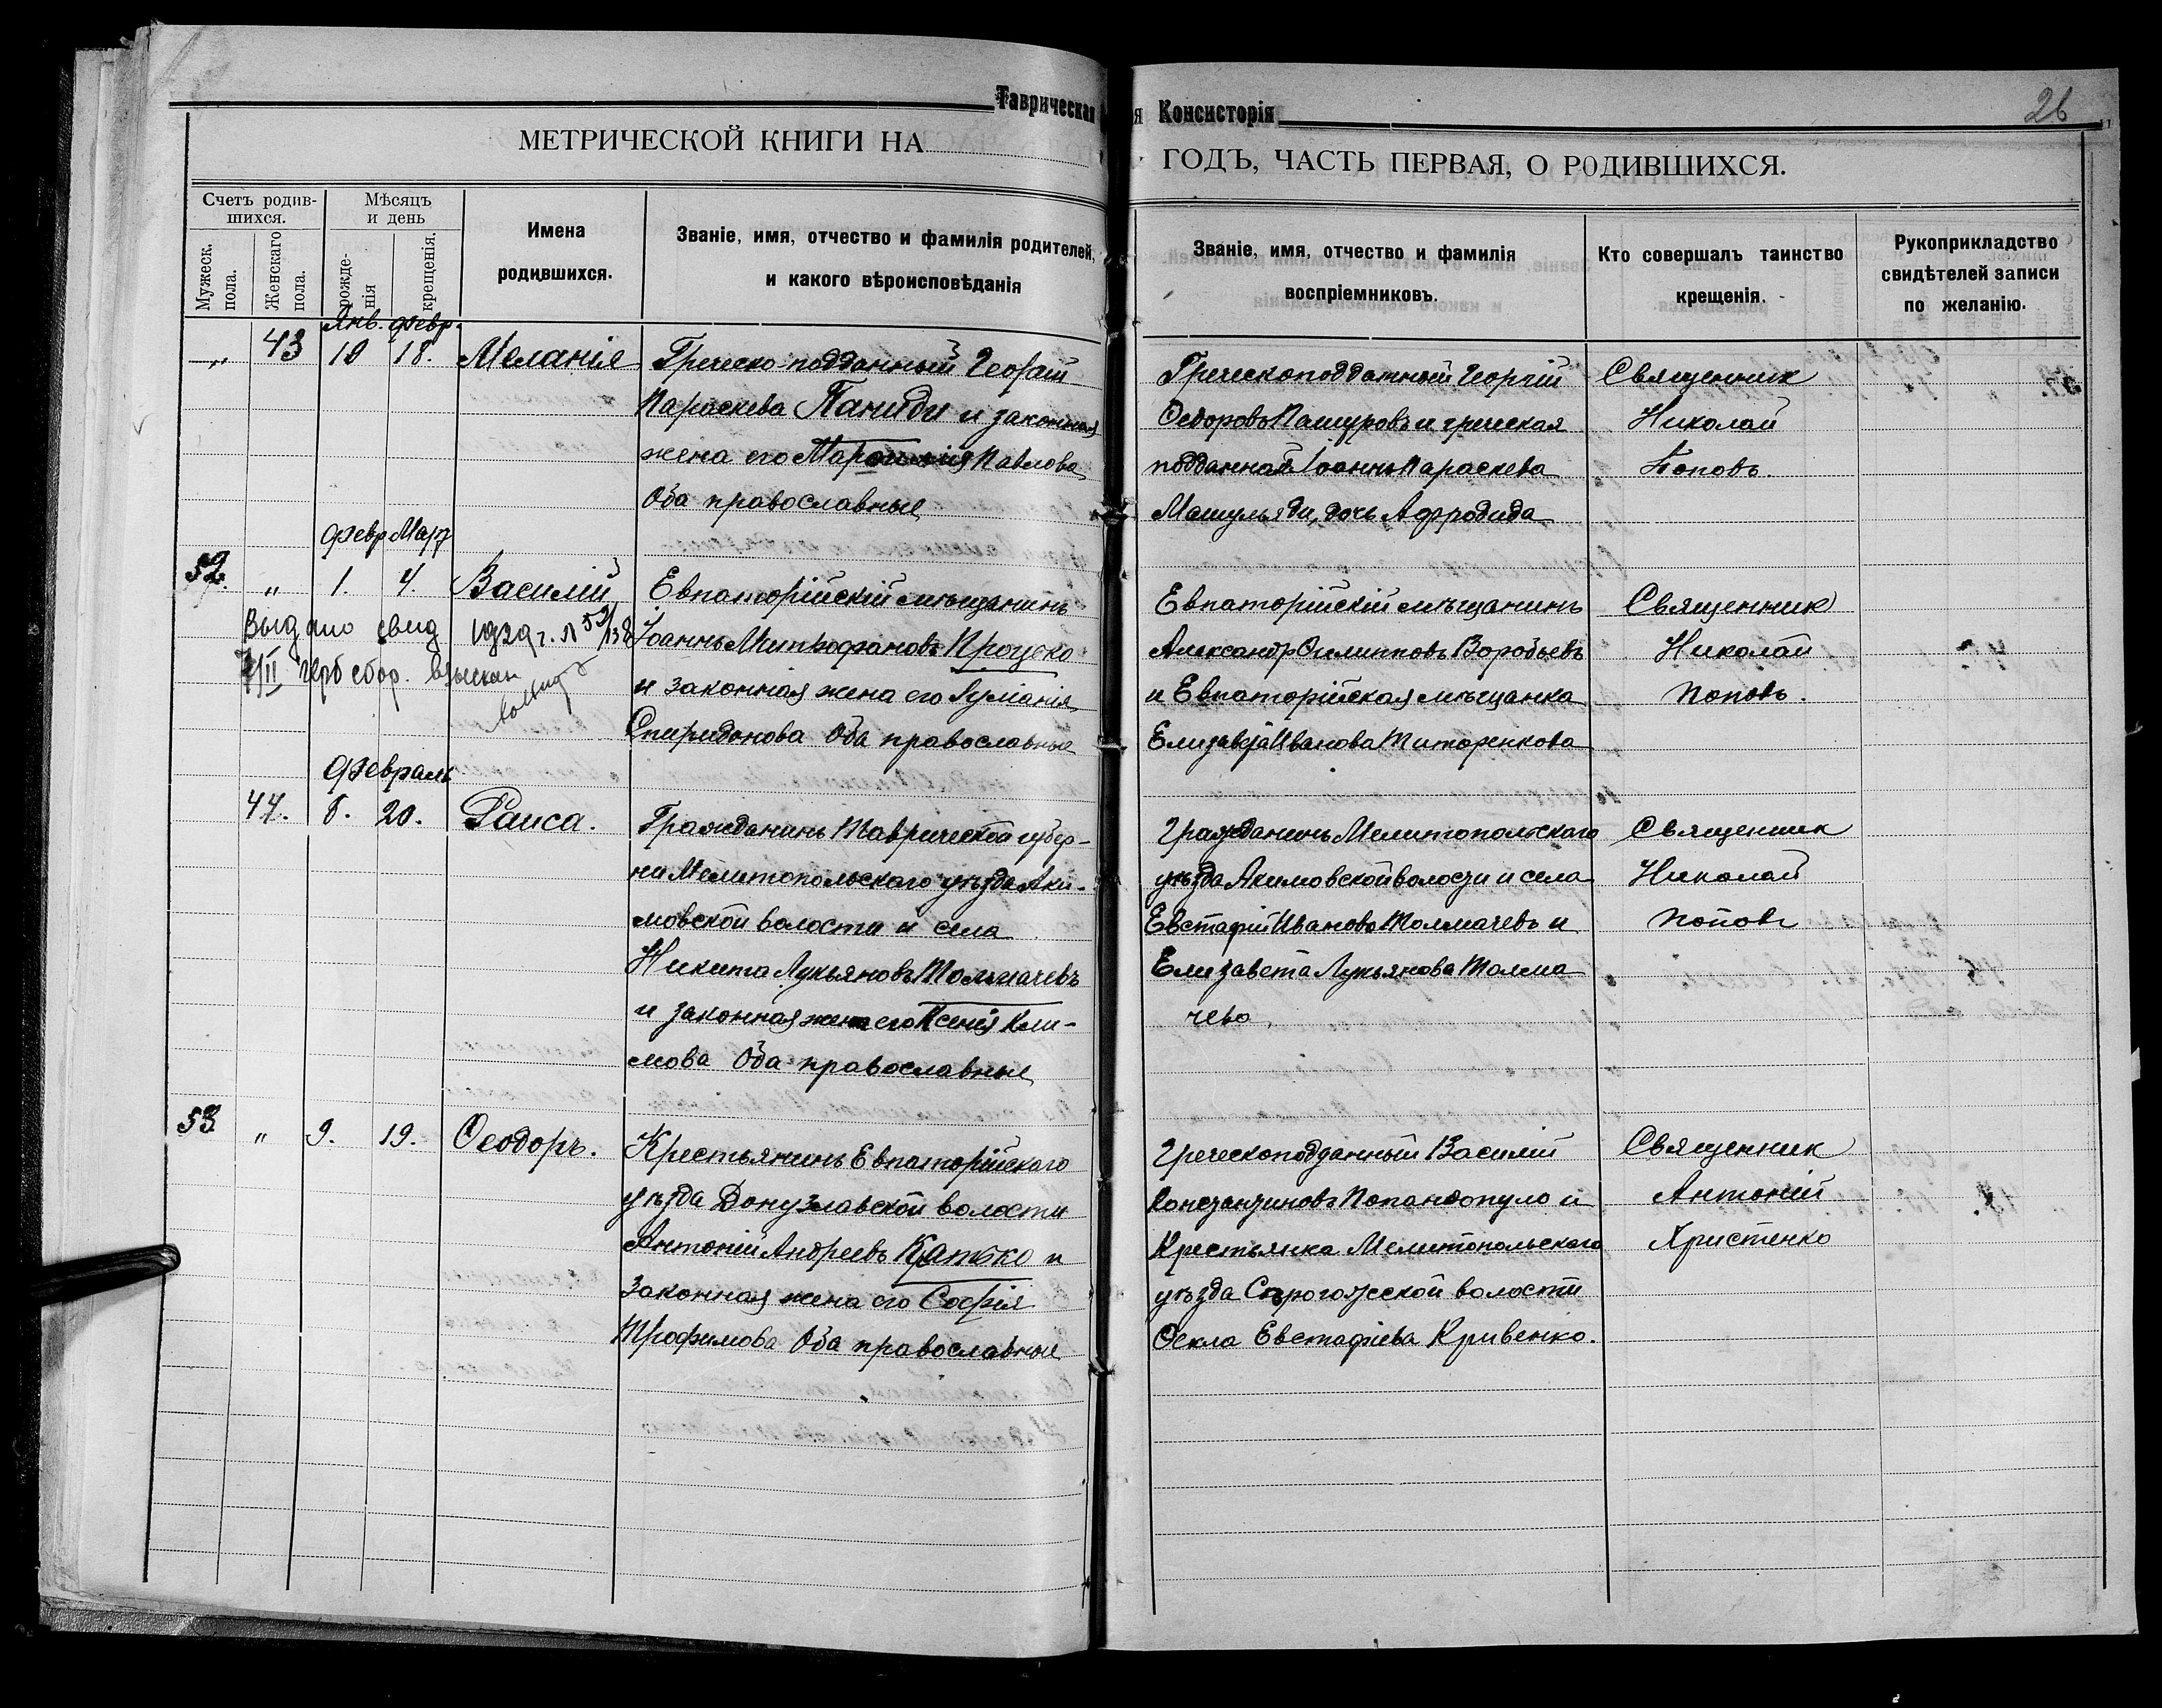 Таврическая
я Консисторія
26
МЕТРИЧЕСКОЙ КНИГИ НА
ГОДЪ, ЧАСТЬ ПЕРВАЯ, О РОДИВШИХСЯ.
Счетъ родив-
шихся.
Мужеск.
пола.
Женскаго
пола.
Мѣсяцъ
и день
рожде-
нія
крещенія.
Имена
родившихся.
Званіе, имя, отчество и фамилія родителей,
и какого вѣроисповѣданія
Званіе, имя, отчество и фамилія
воспріемниковъ.
Кто совершалъ таинство
крещенія.
Рукоприкладство
свидѣтелей записи
по желанію.
Янв. Февр.
" 43 19 18. Меланія
Греческо-подданный Георгій
Параскева Паниди и законная
жена его Павлова
Оба православные
Греческоподданный Георгій
Ѳедоровъ и греческая
подданная Іоаннъ Параскева
дочь Афродида
Священник
Николай
Поповъ.
Февр Март
52. " 1. 4. Василій
Выдано свид 1929 г. №
герб сбор. взыскан
Евпаторійскій мѣщанинъ
Іоаннъ Митрофановъ Проценко
и законная жена его
Спиридонова Оба православные
Евпаторійскій мѣщанинъ
Александр Филипповъ Воробьевъ
и Евпаторійская мѣщанка
Елизавета Иванова Титаренкова
Священник
Николай
Поповъ.
Февраль
44. 8. 20. Раиса.
Гражданинъ Таврической губер-
ни Мелитопольскаго уѣзда Аки-
мовской волости и села
Никита Лукьяновъ Толмачевъ
и законная жена его Ксенія Кли-
мова Оба православные
Гражданинъ Мелитопольскаго
уѣзда Акимовской волости и села
Евстафій Ивановъ Толмачевъ и
Елизавета Лукьянова Толма
чева.
Священник
Николай
Поповъ
53 " 9. 19. Ѳеодоръ.
Крестьянинъ Евпаторійскаго
уѣзда Донузлавской волости
Антоній Андреевъ Катько и
законная жена его Софія
Трофимова Оба православные
Греческоподданный Василій
Константиновъ Попандопуло и
Крестьянка Мелитопольскаго
уѣзда Сѣрогозской волости
Ѳекла Евстафіева Кривенко.
Священник
Антоній
Христенко